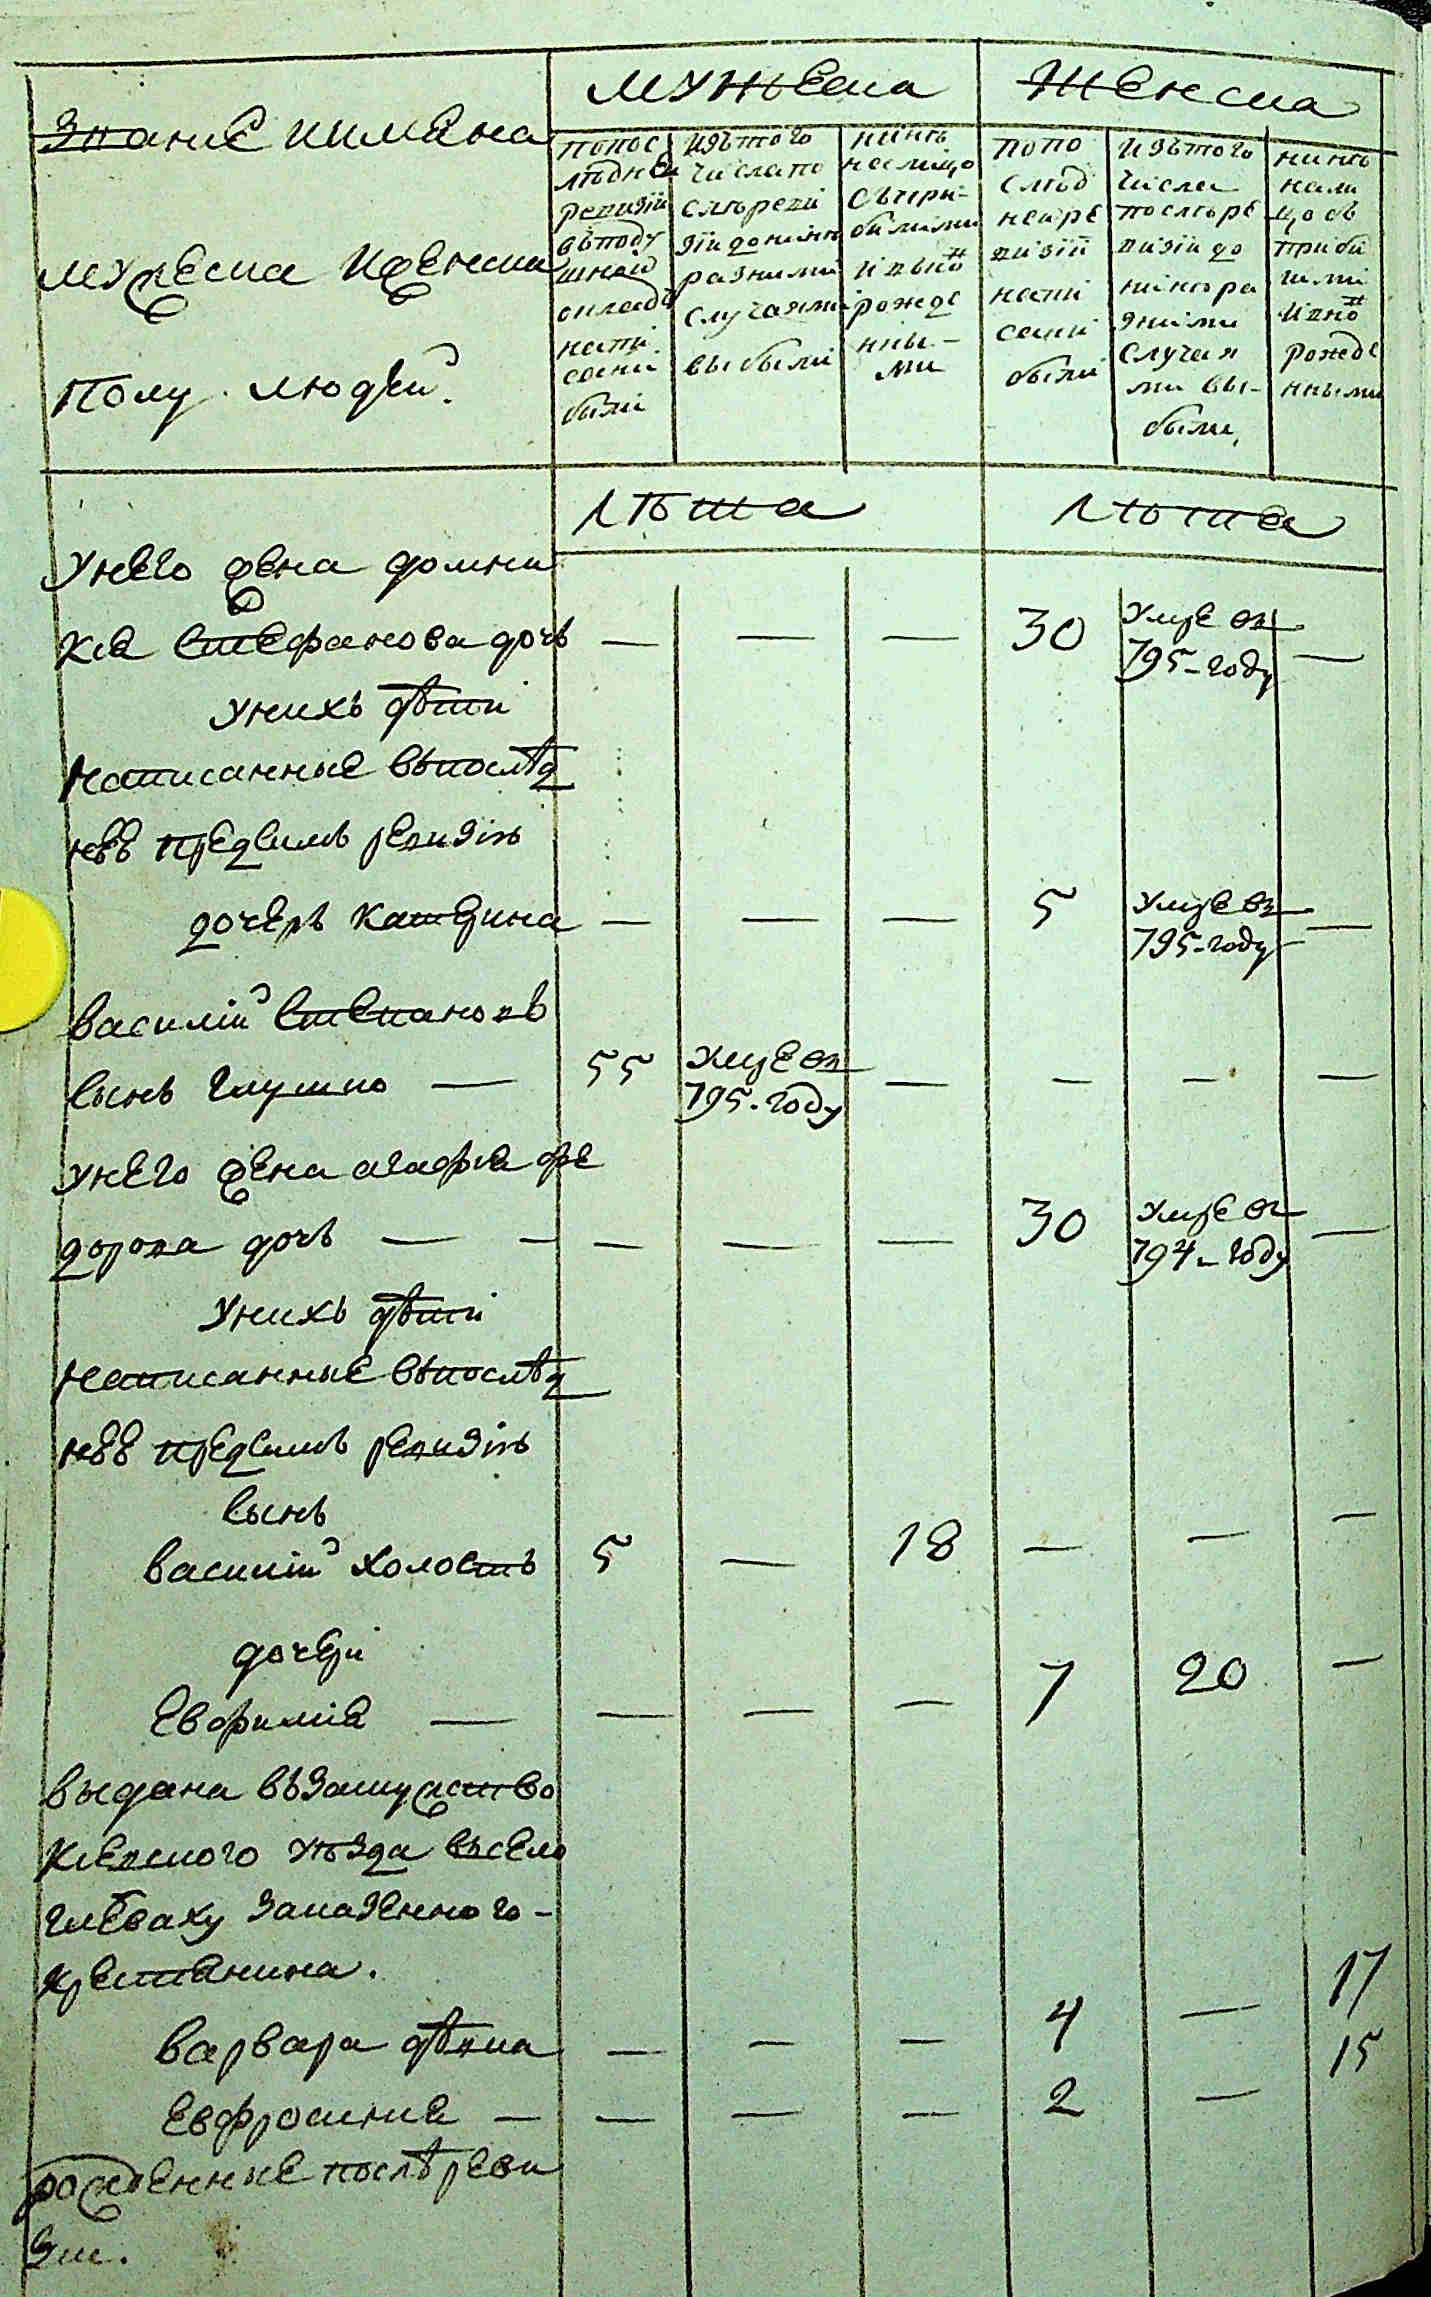 Званиѣ иимѣна
мужеска иженска
Полу. людей.
мужеска
Женска
попос
лѣдней
ревизіи
въподу
шной
окладъ
напи
сани
были
изътого
числапо
слѣреви
зіи донинѣ
разними
случаями
выбыли
нинѣ
налицо
сътри-
былими
ѝ вновъ
рожде
ниы-
ми
попо
слѣд
нейре
визіи
напи
сани
были
изътого
числа
послѣре
визіи до
нинѣра
зними
случая
ми вы-
были,
нинѣ
нали
цо съ
приби
лими
ивно
рожде
нными
лѣта
лѣта
Унего жена домни
кіа Стефанова дочь — — — 30 умре въ 795-году —
Унихъ дѣти
Написанные въпослѣд
нѣй предсимъ ревизіи
дочерь Катерина — — — 5 умре въ 795-году —
Василій Степановъ
Сынъ Глушко — 55 умре въ 795.году — — — —
Унего жена агафиа фе
дорова дочь — — — — — 30 умре въ 794-году —
Унихъ дѣти
Написанные въпослѣд
нѣй предсимъ ревизіи
Сынъ
Василій холостъ 5 — 18 — — —
дочери
Евфимиа — — — — 7 20 —
выдана въЗамужство
Киевского уѣзда въсело
Глеваху Заказенного-
крестянина.
Варвара дѣвка — — — 4 — 17
Евфросиниа — — — — 2 — 15
рожденные послѣ реви
Зіи.